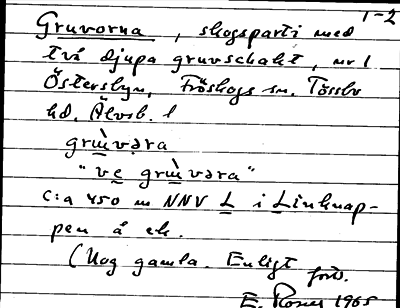 1-2
Gruvorna, skogsparti med
två djupa gruvschakt, nr 1
Österbyn, Fröskogs sn. Tössbo
hd. Älvsb. l
grùvəra
"ve grùvəra"
c:a 450 m NNV L i Linknap-
pen å ek.
(Nog gamla. Enligt
E. Rosner 1965